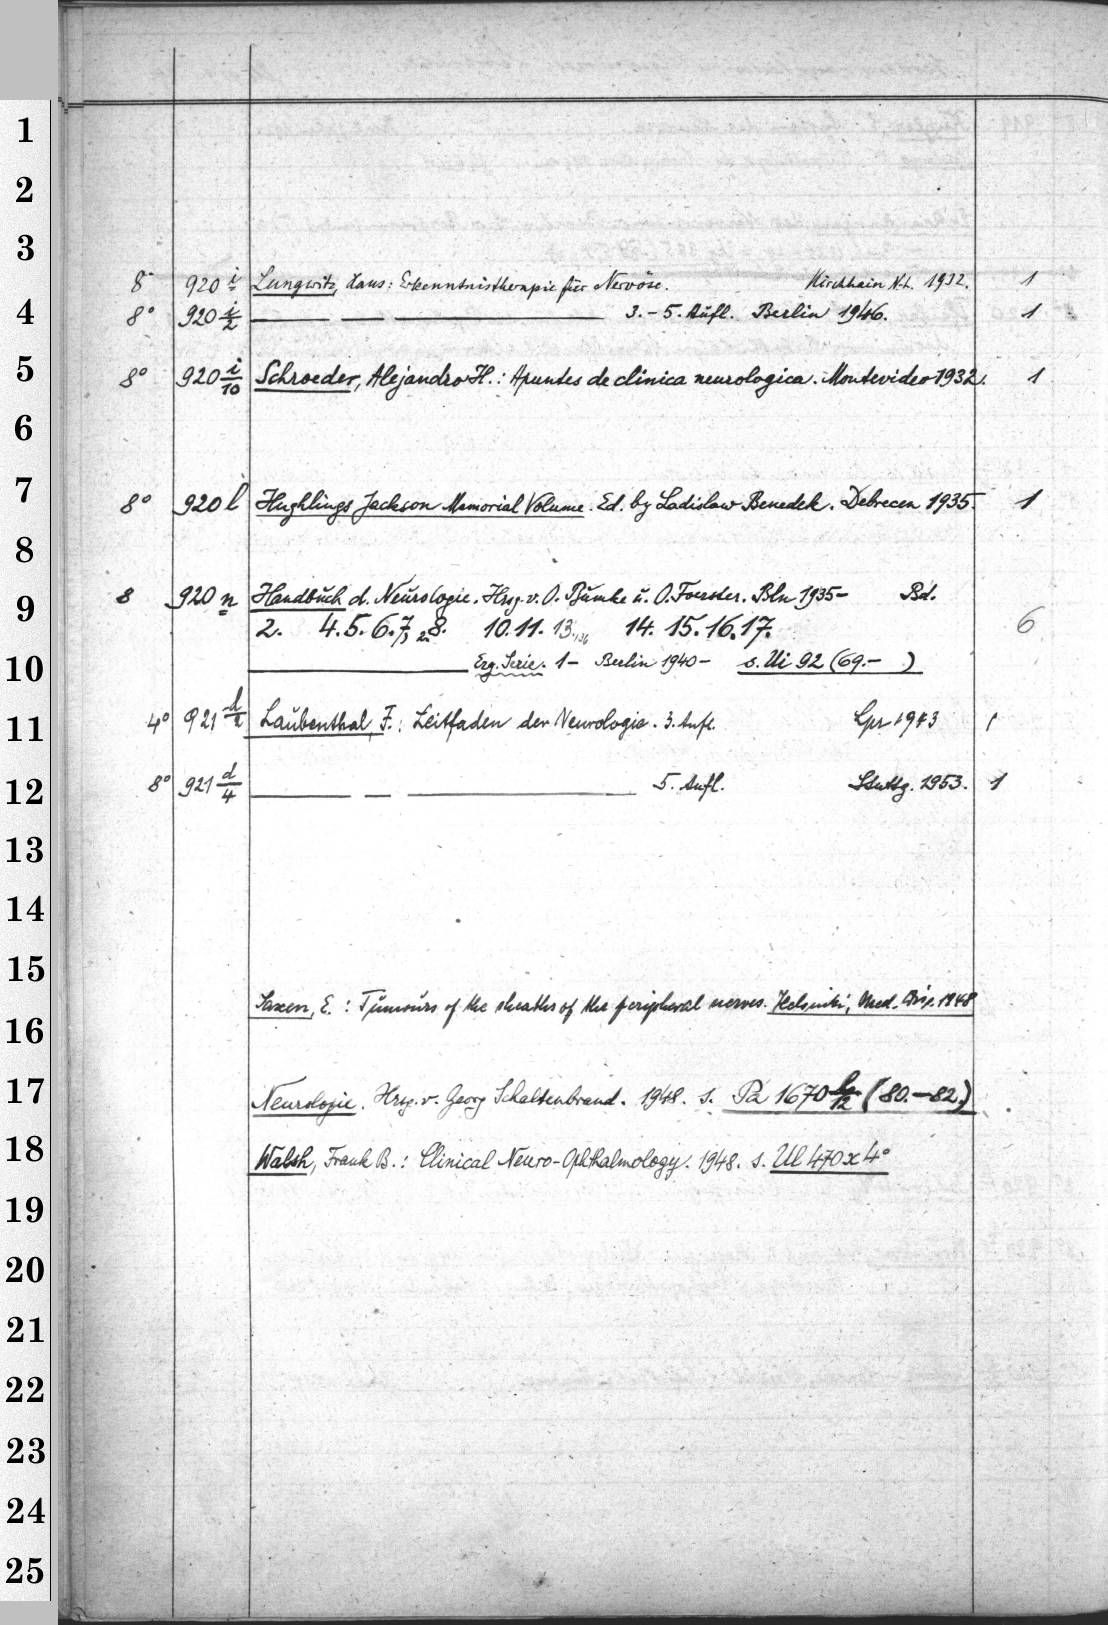 1
2
3
8° 920 i Lungwitz, Hans: Erkenntnistherapie für Nervöse. Kirchhain N.-L. 1932. 1
4 8° 920 i/2 ——— — ——— 3.-5. Aufl. Berlin 1946. 1
5 8° 920 i/10 Schroeder, Alejandro H.: Apuntes de clinica neurologica. Montevideo 1932. 1
6
7 8° 920 l Hughlings Jackson Memorial Volume. Ed. by Ladislaw Benedek. Debrecen 1935. 1
8
9 8 920 n Handbuch d. Neurologie. Hrsg. v. O. Bumke u. O. Foerster. Bln 1935- Bd.
2. 4. 5. 6. 7, 8. 10. 11. 13. 14. 15. 16. 17. 6
10 ——— Erg. Serie. 1- Berlin 1940- s. Ui 92 (69.- )
11 4° 921 d/2 Laubenthal, F.: Leitfaden der Neurologie. 3. Aufl. Lpz 1943 1
12 8° 921 d/4 ——— — ——— 5. Aufl. Stuttg. 1953. 1
13
14
15
Saxen, E.: Tumours of the sheaths of the peripheral nerves. Helsinki, Med. Diss. 1948
16
17 Neurologie. Hrsg. v. Georg Schaltenbrand. 1948. s. Pa 1670 (80.-82.)
18 Walsh, Frank B.: Clinical Neuro-Ophthalmology. 1948. s. Ul 470 x 4°
19
20
21
22
23
24
25